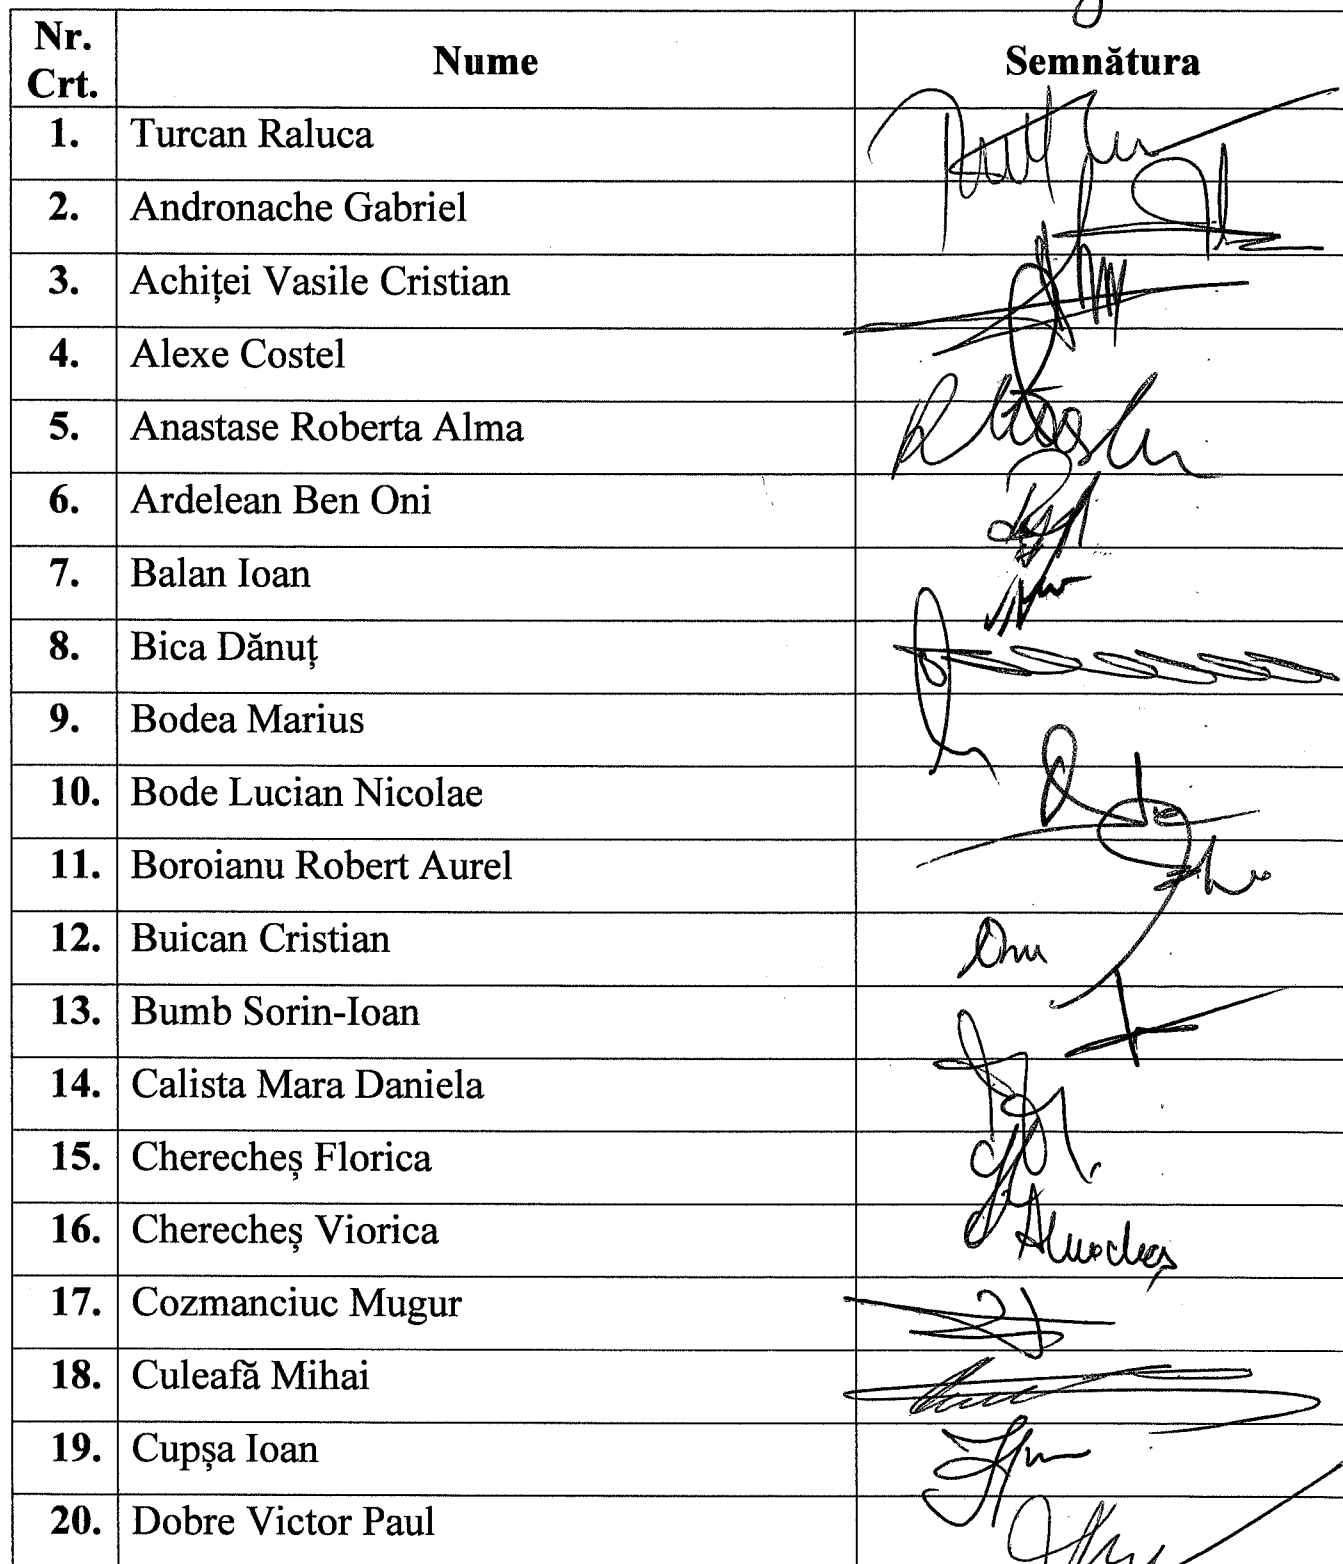 Nr. Crt. Nume Semnătura
1. Turcan Raluca
2. Andronache Gabriel
3. Achiței Vasile Cristian
4. Alexe Costel
5. Anastase Roberta Alma
6. Ardelean Ben Oni
7. Balan Ioan
8. Bica Dănuț
9. Bodea Marius
10. Bode Lucian Nicolae
11. Boroianu Robert Aurel
12. Buican Cristian
13. Bumb Sorin-Ioan
14. Calista Mara Daniela
15. Cherecheș Florica
16. Cherecheș Viorica
17. Cozmanciuc Mugur
18. Culeafă Mihai
19. Cupșa Ioan
20. Dobre Victor Paul